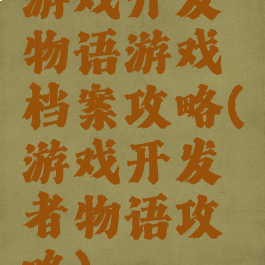 游戏开发
物语游戏
档案攻略(
游戏开发
者物语攻
略)